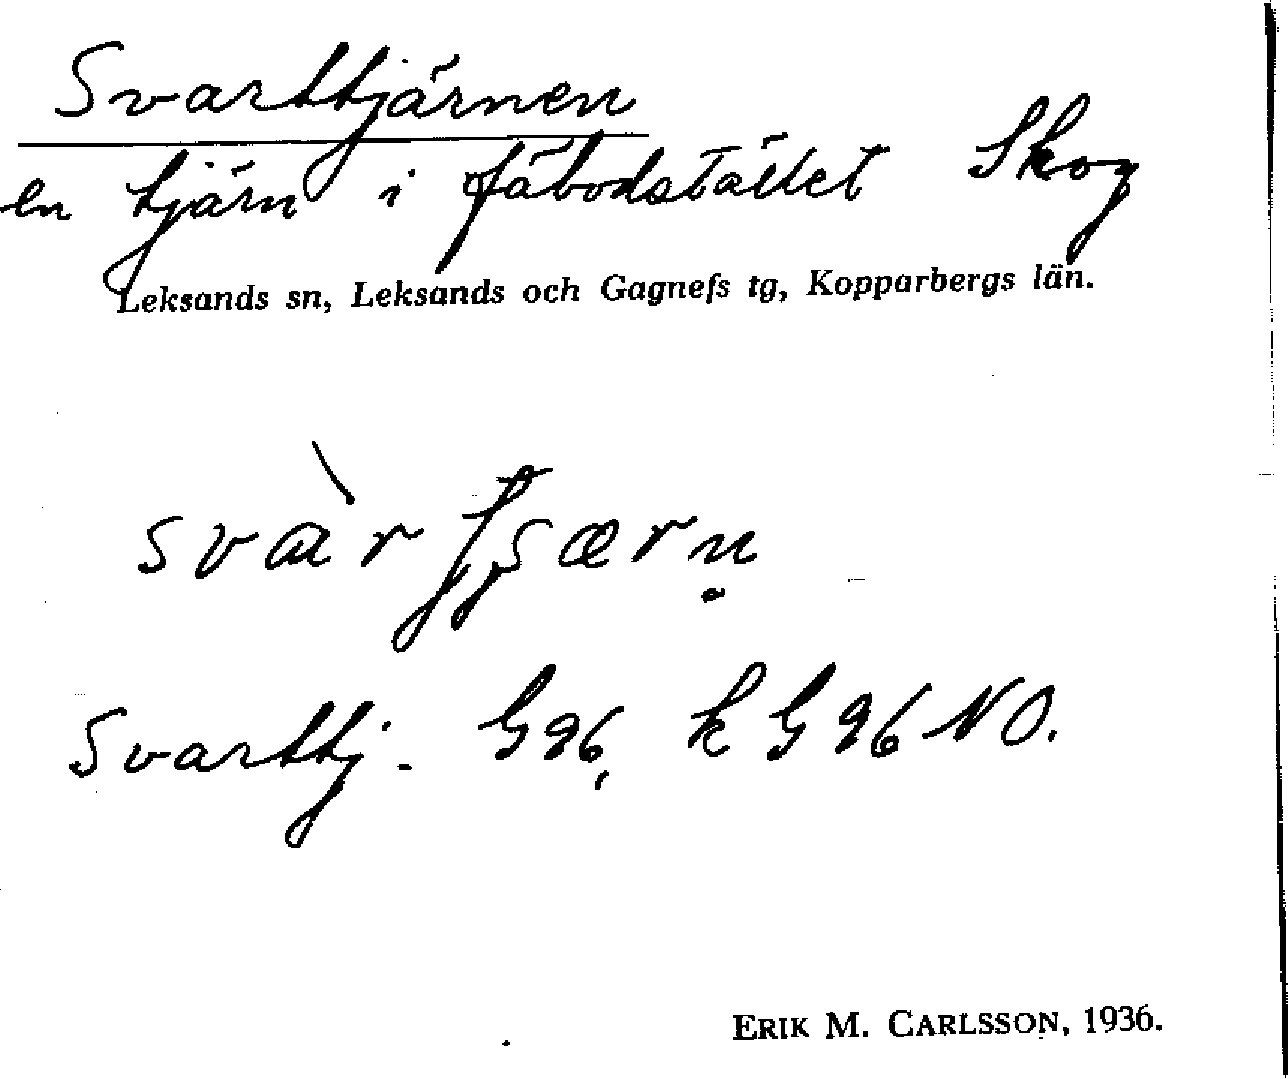 Svarttjärnen
en tjärn i fäbodstället Skog
Leksands sn, Leksands och Gagnefs tg, Kopparbergs län.
Svarttj. G 96, k G 96 NO.
ERIK M. CARLSSON, 1936.